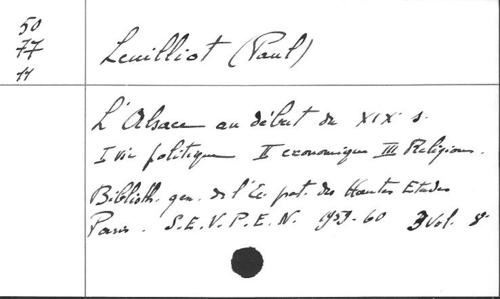 50
77
11
Leuilliot (Paul)
L'Alsace au début du XIXe s.
I vie politique II economique III Religions.
Biblioth. gen. de l'Ec. prat. des Hautes Etudes
Paris. S.E.V.P.E.N. 1959-60 3 Vol. 8°